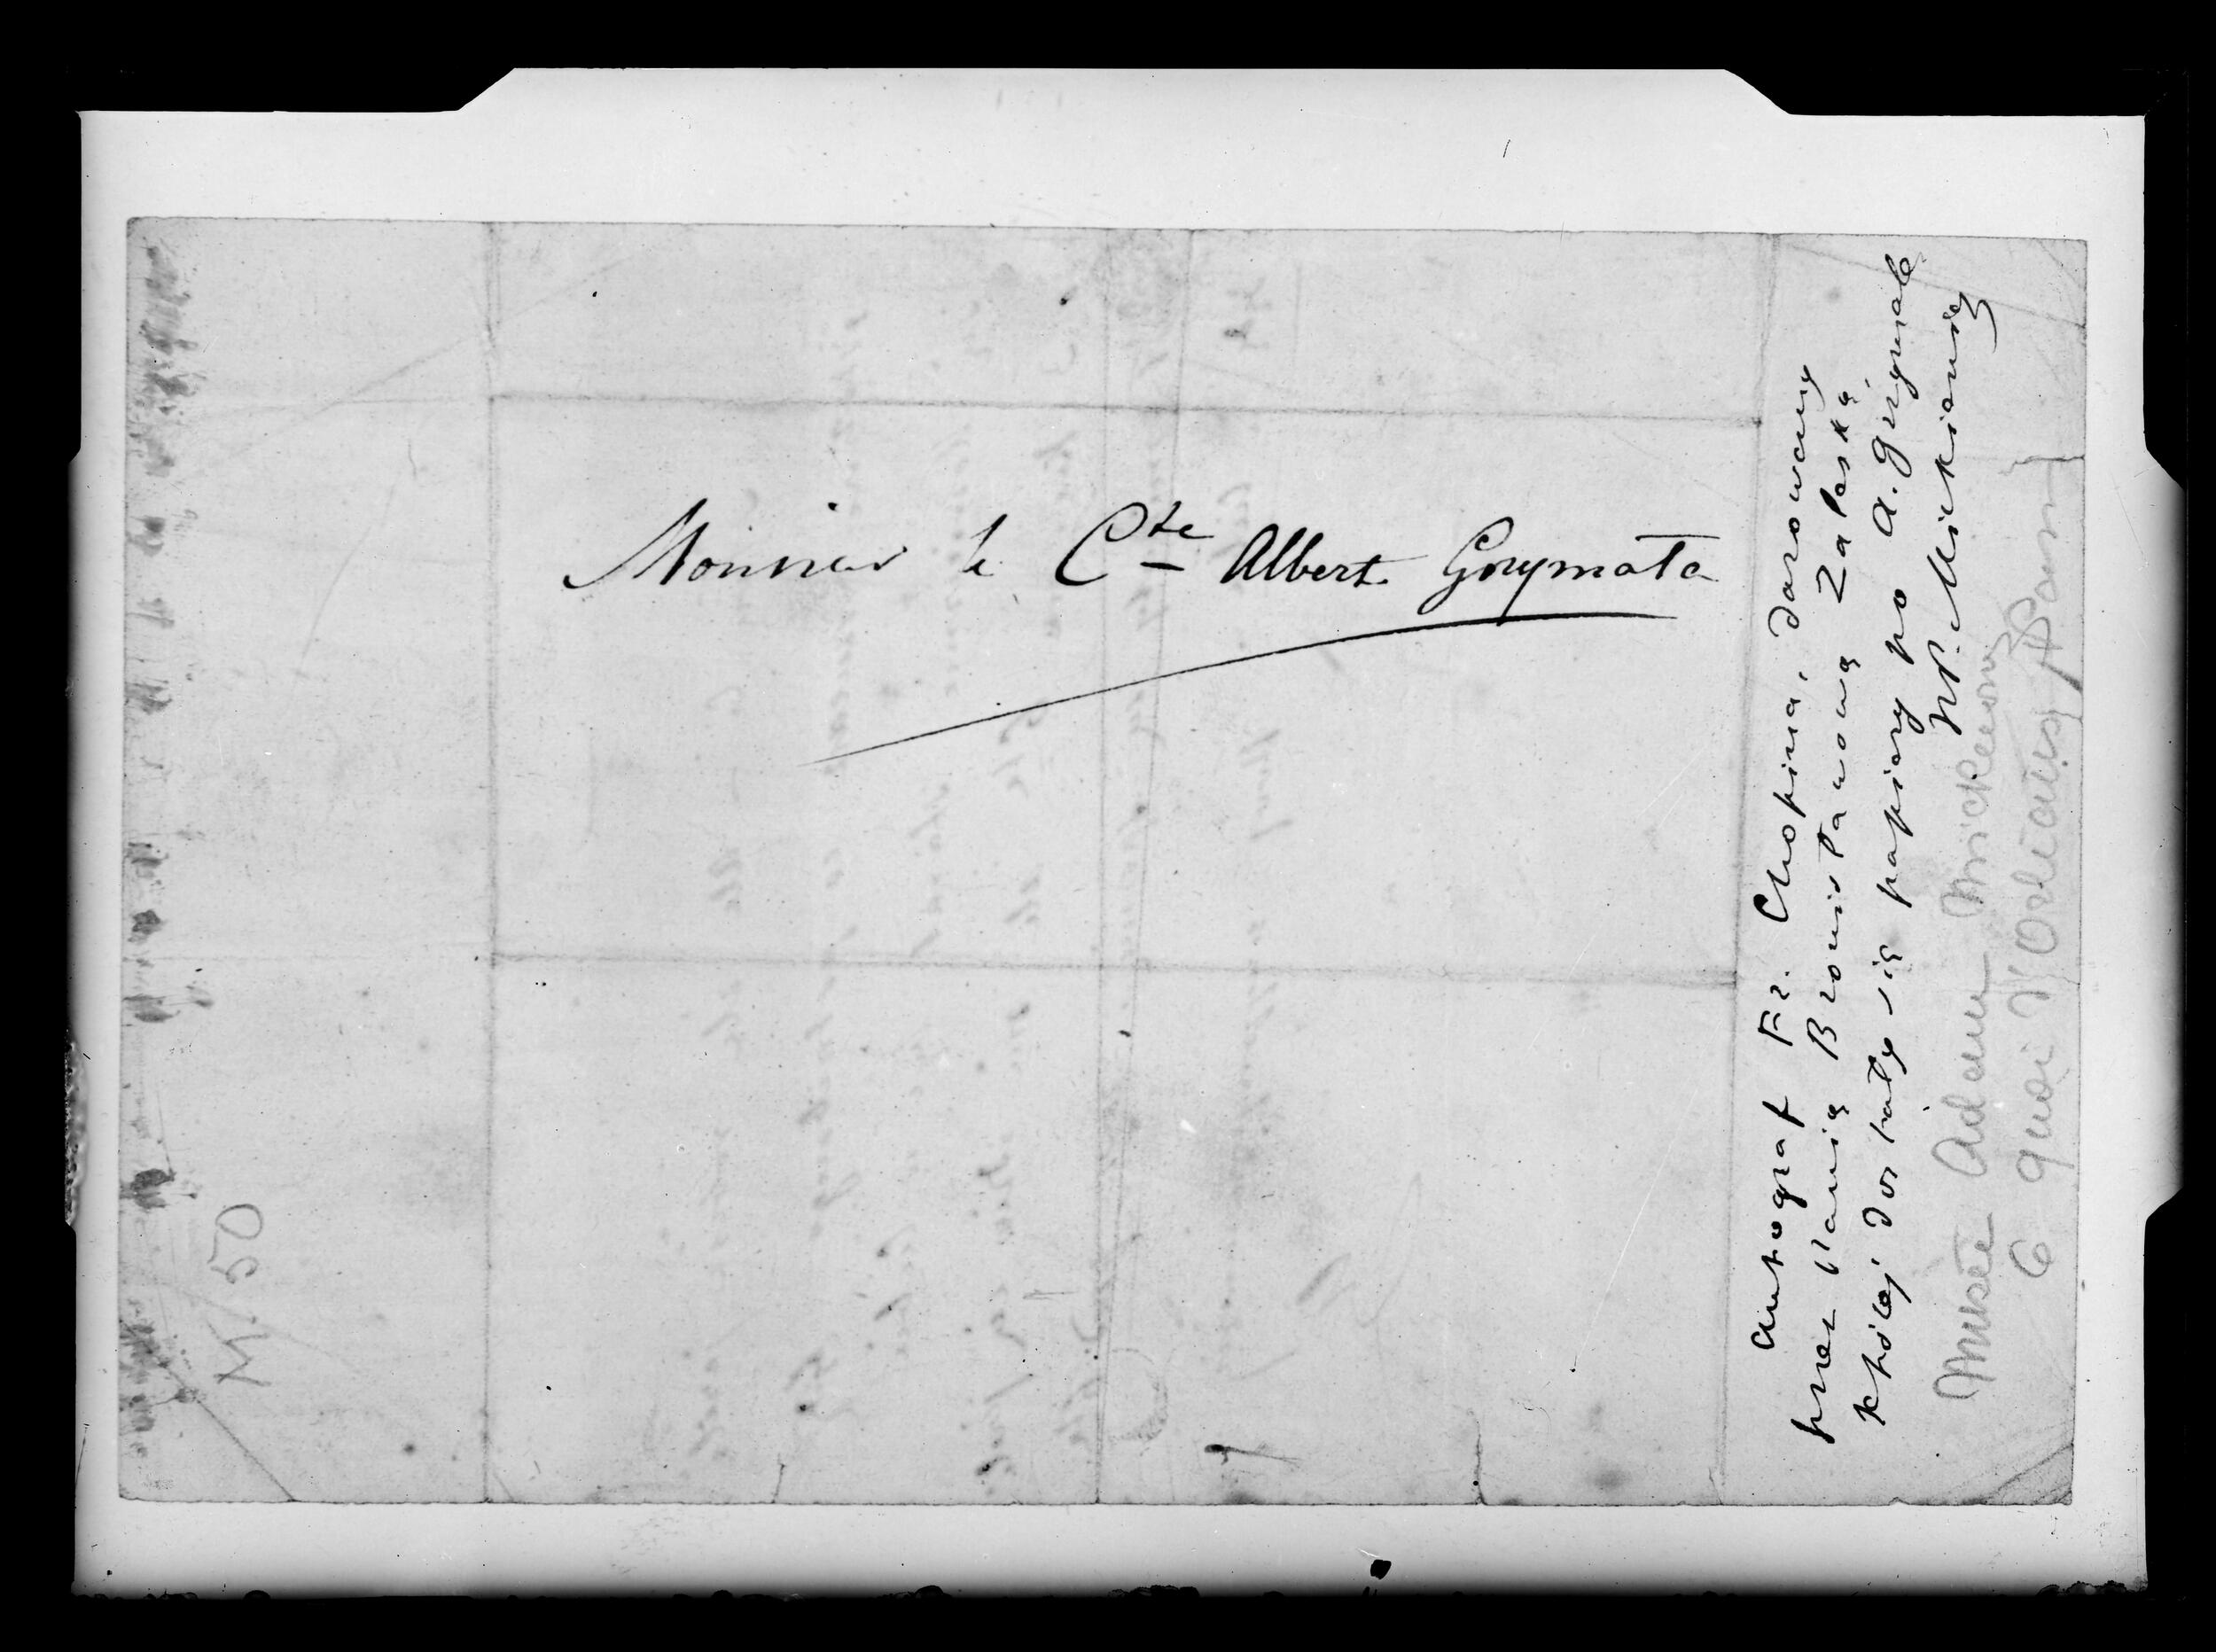 Monsieur le Cte Albert Grzymała
Autograf Fr. Chopina, darowany
przez Panią Bronisławową Zaleską
której dostały się papiery po A. Grzymale
Wł. Mickiewicz
Musée Adam Mickiewicz
6 quai d'Orléans, Paris
M. 50